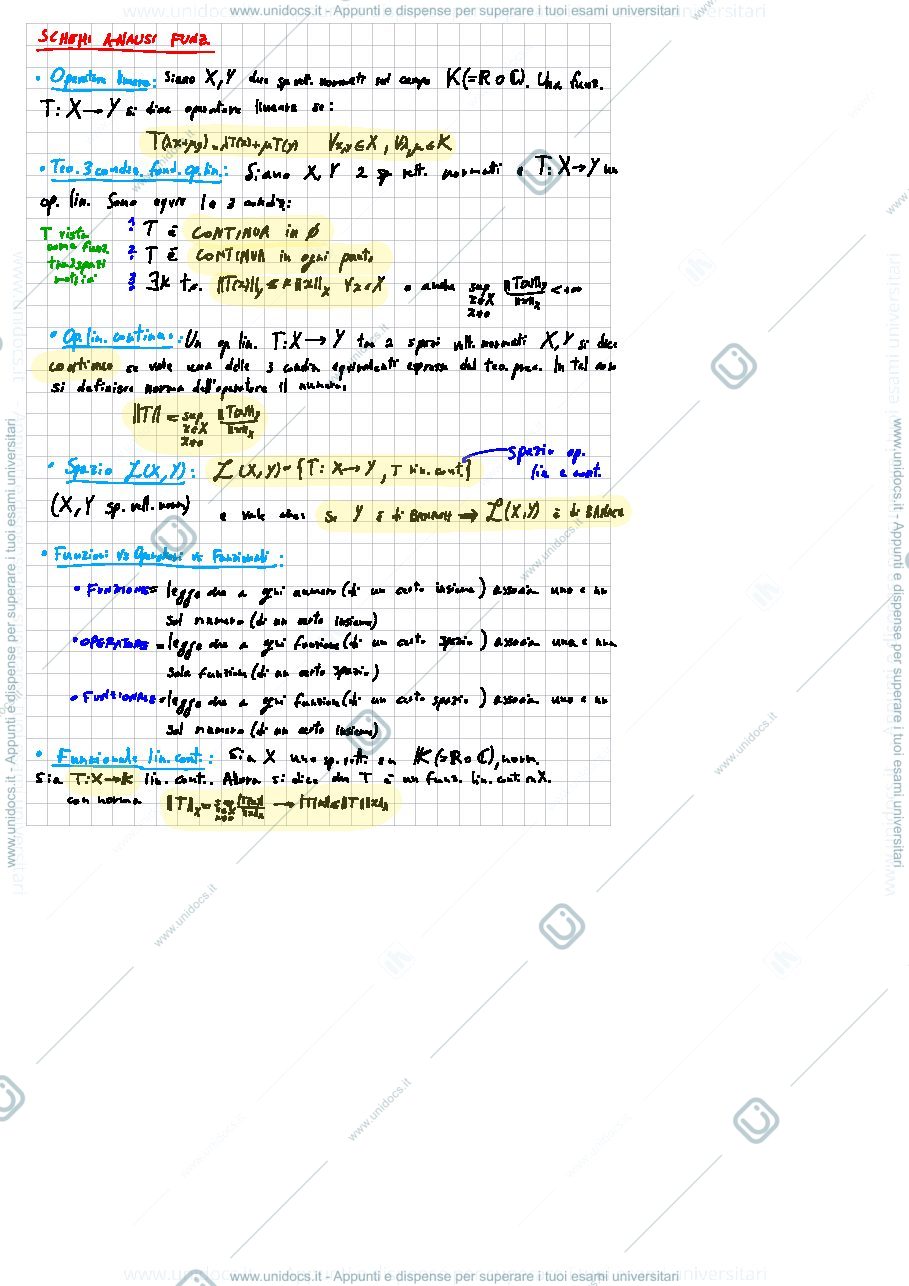 www.unidocs.it - Appunti e dispense per superare i tuoi esami universitari
SCHEMI ANALISI FUNZ.
• Operatore lineare: Siano X, Y due sp. vett. normati sul campo K (=R o C). Una funz.
T: X → Y si dice operatore lineare se:
T(λx+μy) = λT(x) + μT(y) ∀x,y ∈ X, ∀λ,μ ∈ K
• Teo. 3 condiz. fond. op. lin.: Siano X, Y 2 sp. vett. normati e T: X → Y un
op. lin. Sono equiv. le 3 condiz:
T vista come funz. tra spazi metrici
1. T è CONTINUA in 0
2. T è CONTINUA in ogni punto
3. ∃k t.c. ||T(x)||_Y ≤ k ||x||_X ∀x ∈ X o anche sup x∈X x≠0 ||T(x)||_Y / ||x||_X < +∞
• Op. lin. continuo: Un op. lin. T: X → Y tra 2 spazi vett. normati X, Y si dice
continuo se vale una delle 3 condiz. equivalenti espresse dal teo. prec. In tal caso
si definisce norma dell'operatore il numero:
||T|| = sup x∈X x≠0 ||T(x)||_Y / ||x||_X
• Spazio L(X,Y): L(X,Y) = {T: X → Y, T lin. cont.} spazio op.
lin. e cont.
(X, Y sp. vett. norm.) e vale che: Se Y è di BANACH ⇒ L(X,Y) è di BANACH
• Funzioni vs Operatori vs Funzionali:
• FUNZIONE = legge che a ogni numero (di un certo insieme) associa uno e un
sol numero (di un certo insieme)
• OPERATORE = legge che a ogni funzione (di un certo spazio) associa una e una
sola funzione (di un certo spazio)
• FUNZIONALE = legge che a ogni funzione (di un certo spazio) associa uno e un
sol numero (di un certo insieme)
• Funzionale lin. cont.: Sia X uno sp. vett. su K (=R o C), norm.
Sia T: X → K lin. cont. Allora si dice che T è un funz. lin. cont. in X.
con norma ||T|| = sup x∈X x≠0 |T(x)| / ||x||_X → |T(x)| ≤ ||T|| ||x||_X
www.unidocs.it - Appunti e dispense per superare i tuoi esami universitari